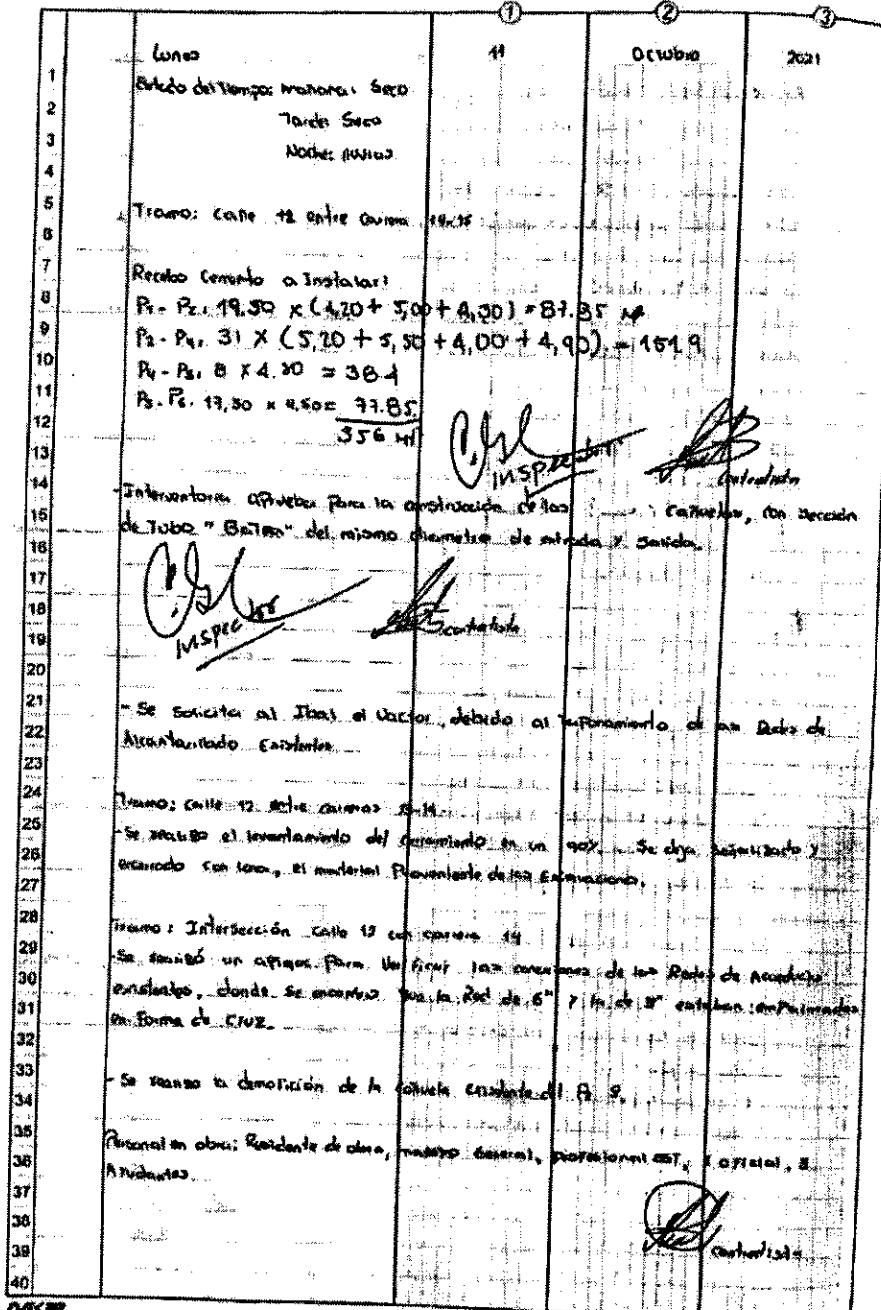 ① ② ③
Lunes 11 Octubre 2021
1 Estado del tiempo: mañana: Seco
2 Tarde: Seco
3 Noche: lluvias
4
5 Tramo: Calle 12 entre Carrera
6
7 Recebo Cemento a Instalar:
8 P1 - P2. 19.50 x (4,20 + 5,00 + 4,30) = 87.85
9 P2 - P4. 31 x (5,20 + 5,50 + 4,00 + 4,90) = 151.9
10 P4 - P5. 8 x 4.80 = 38.4
11 P5 - P6. 17,30 x 4,50 = 77.85
12 356
13 Inspector
14 Contratista
- Interventoria aprueba para la construcción de las Cañuelas, con sección
15 de Tubo " " del mismo diametro de entrada y salida.
16
17
18
19 Inspector Contratista
20
21 - Se solicita al Ibal el Vactor, debido al taponamiento de Redes de
22 Alcantarillado Existentes
23
24 Tramo: Calle 12 entre carreras 13-14
25 - Se realizo el levantamiento del cerramiento en un 90%. Se deja señalizado y
26 con lona, el material Proveniente de las Excavaciones.
27
28 Tramo: Intersección calle 13 con carrera 14
29 - Se realizó un apique para Verificar las conexiones de las Redes de Acueducto
30 existentes, donde se encontro que la Red de 6" y la de 8" estaban empalmadas
31 en Forma de Cruz.
32
33 - Se realizo la demolición de la cañuela existente del
34
35 Personal en obra: Residente de obra, maestro General, profesional SST, oficial,
36 Ayudantes
37
38
39 Contratista
40